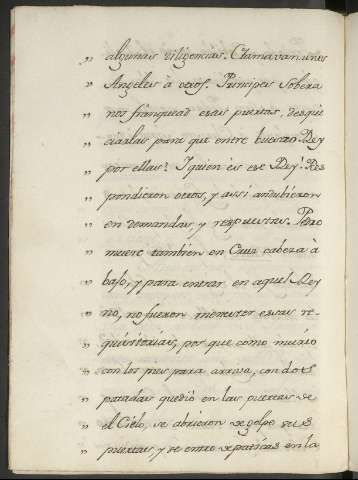 „ algunas diligencias. Clamavan unos
„ Angeles à otros. Principes sobera
„ nos franquead esas puertas, desqui
„ ciadlas para que entre buestro Rey
„ por ellas? I quien es ese Rey? Res
„ pondieron otros, y assi andubieron
„ en demandas, y respuestas. Pedro
„ muere tambien en Cruz cabeza à
„ bajo, y para entrar en aquel Rey
„ no, no fueron menester essas re
„ quisitorias, por que como murió
„ con los pies para arriva, con dos
„ patadas que dió en las puertas de
„ el Cielo, se abrieron de golpe sus
„ puertas, y se entro de patitas en la